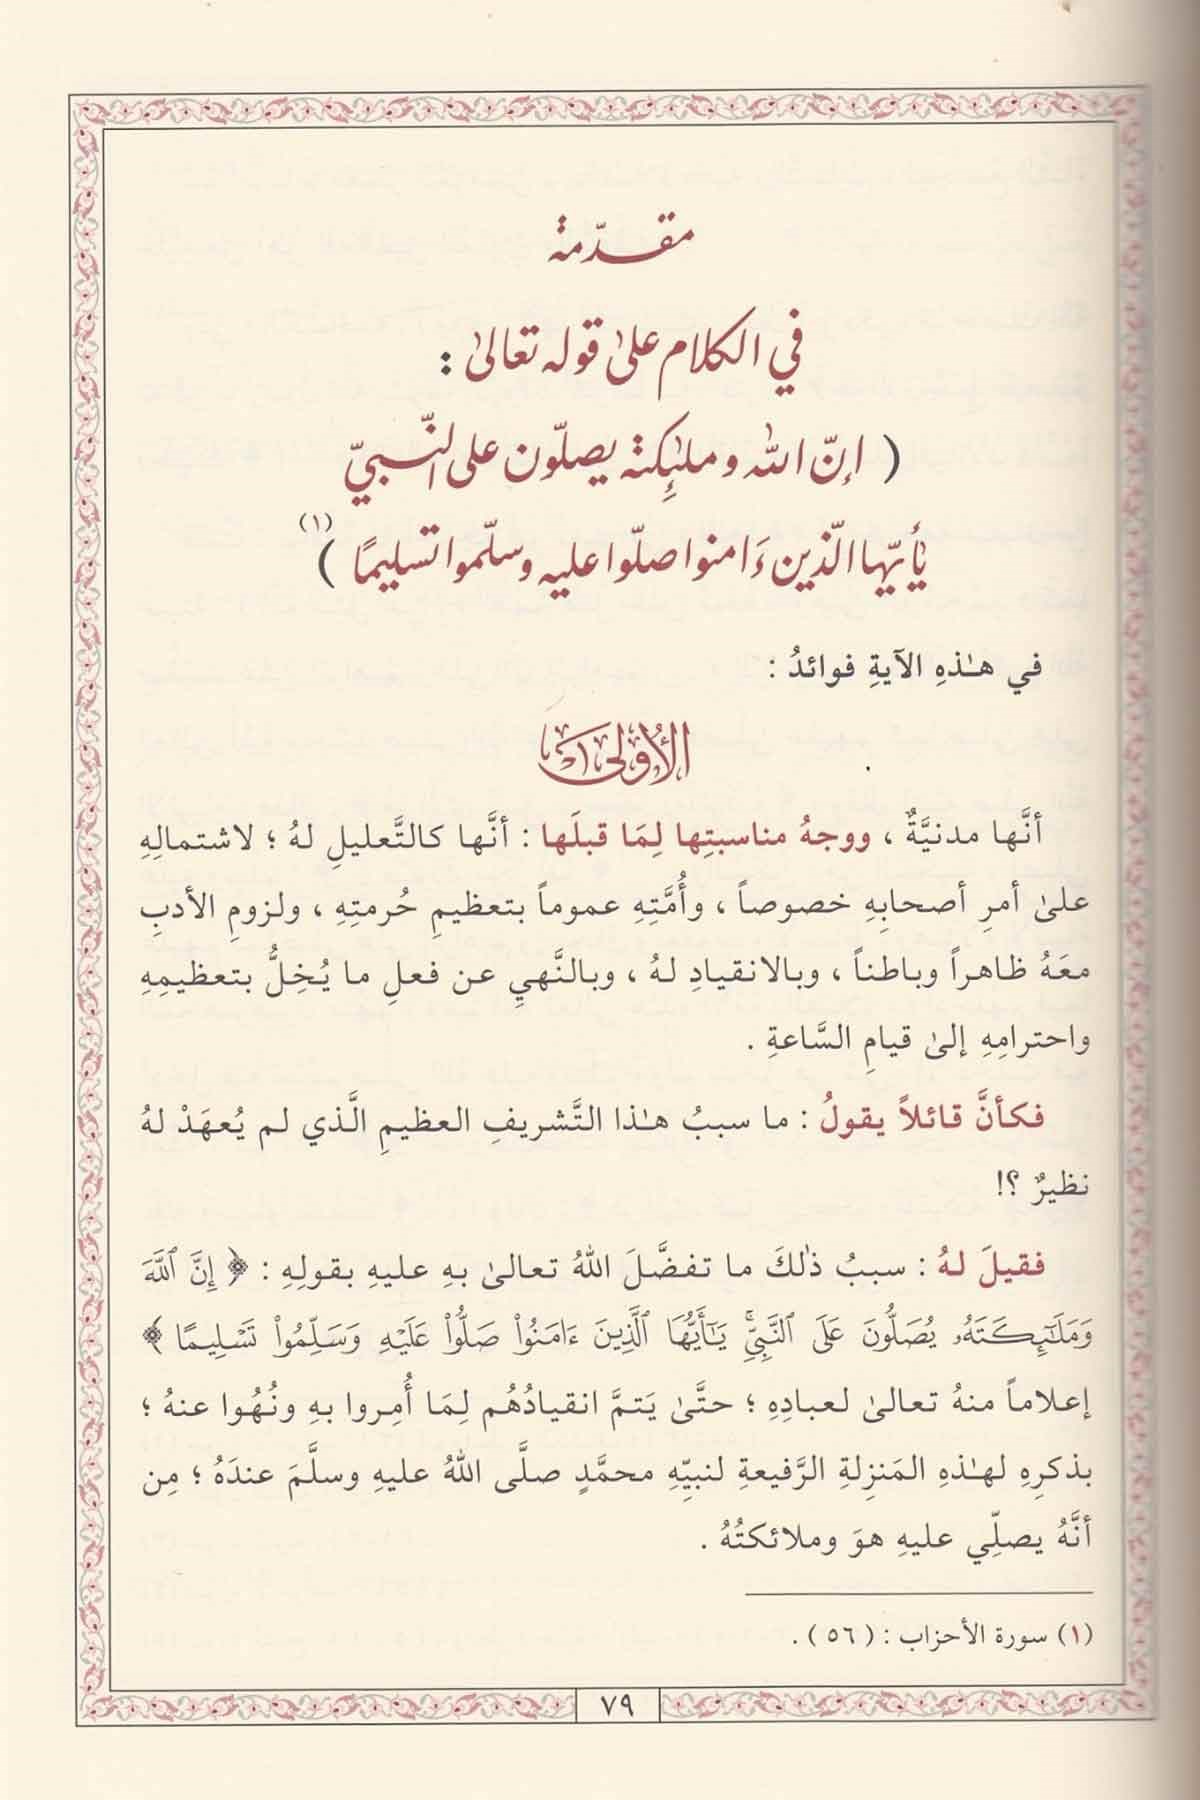 مقدّمة
في الكلام علىٰ قوله تعالىٰ :
( إنّ الله وملٰئِكتة يصلّون على النّبيّ
يٰأيّها الّذين ءَامنوا صلّوا عليه وسلّموا تسليمًا )(١)
في هـٰذهِ الآيةِ فوائدُ :
الأُولىٰ
أنَّها مدنيَّةٌ ، ووجهُ مناسبتِها لِمَا قبلَها : أنَّها كالتَّعليلِ لهُ ؛ لاشتمالِهِ
علىٰ أمرِ أصحابِهِ خصوصاً ، وأُمَّتِهِ عموماً بتعظيمِ حُرمتِهِ ، ولزومِ الأدبِ
معَهُ ظاهراً وباطناً ، وبالانقيادِ لهُ ، وبالنَّهيِ عن فعلِ ما يُخِلُّ بتعظيمِهِ
واحترامِهِ إلىٰ قيامِ السَّاعةِ .
فكأنَّ قائلاً يقولُ : ما سببُ هـٰذا التَّشريفِ العظيمِ الَّذي لم يُعهَدْ لهُ
نظيرٌ ؟!
فقيلَ لهُ : سببُ ذٰلكَ ما تفضَّلَ اللهُ تعالىٰ بهِ عليهِ بقولِهِ : ﴿ إِنَّ ٱللَّهَ
وَمَلَـٰٓئِكَتَهُۥ يُصَلُّونَ عَلَى ٱلنَّبِيِّۚ يَـٰٓأَيُّهَا ٱلَّذِينَ ءَامَنُوا۟ صَلُّوا۟ عَلَيْهِ وَسَلِّمُوا۟ تَسْلِيمًا ﴾
إعلاماً منهُ تعالىٰ لعبادِهِ ؛ حتَّىٰ يَتمَّ انقيادُهُم لِمَا أُمِروا بهِ ونُهُوا عنهُ ؛
بذكرِهِ لهـٰذهِ المَنزلةِ الرَّفيعةِ لنبيِّهِ محمَّدٍ صلَّى اللهُ عليهِ وسلَّمَ عندَهُ ؛ مِن
أنَّهُ يصلِّي عليهِ هوَ وملائكتُهُ .
(١) سورة الأحزاب : ( ٥٦ ) .
٧٩